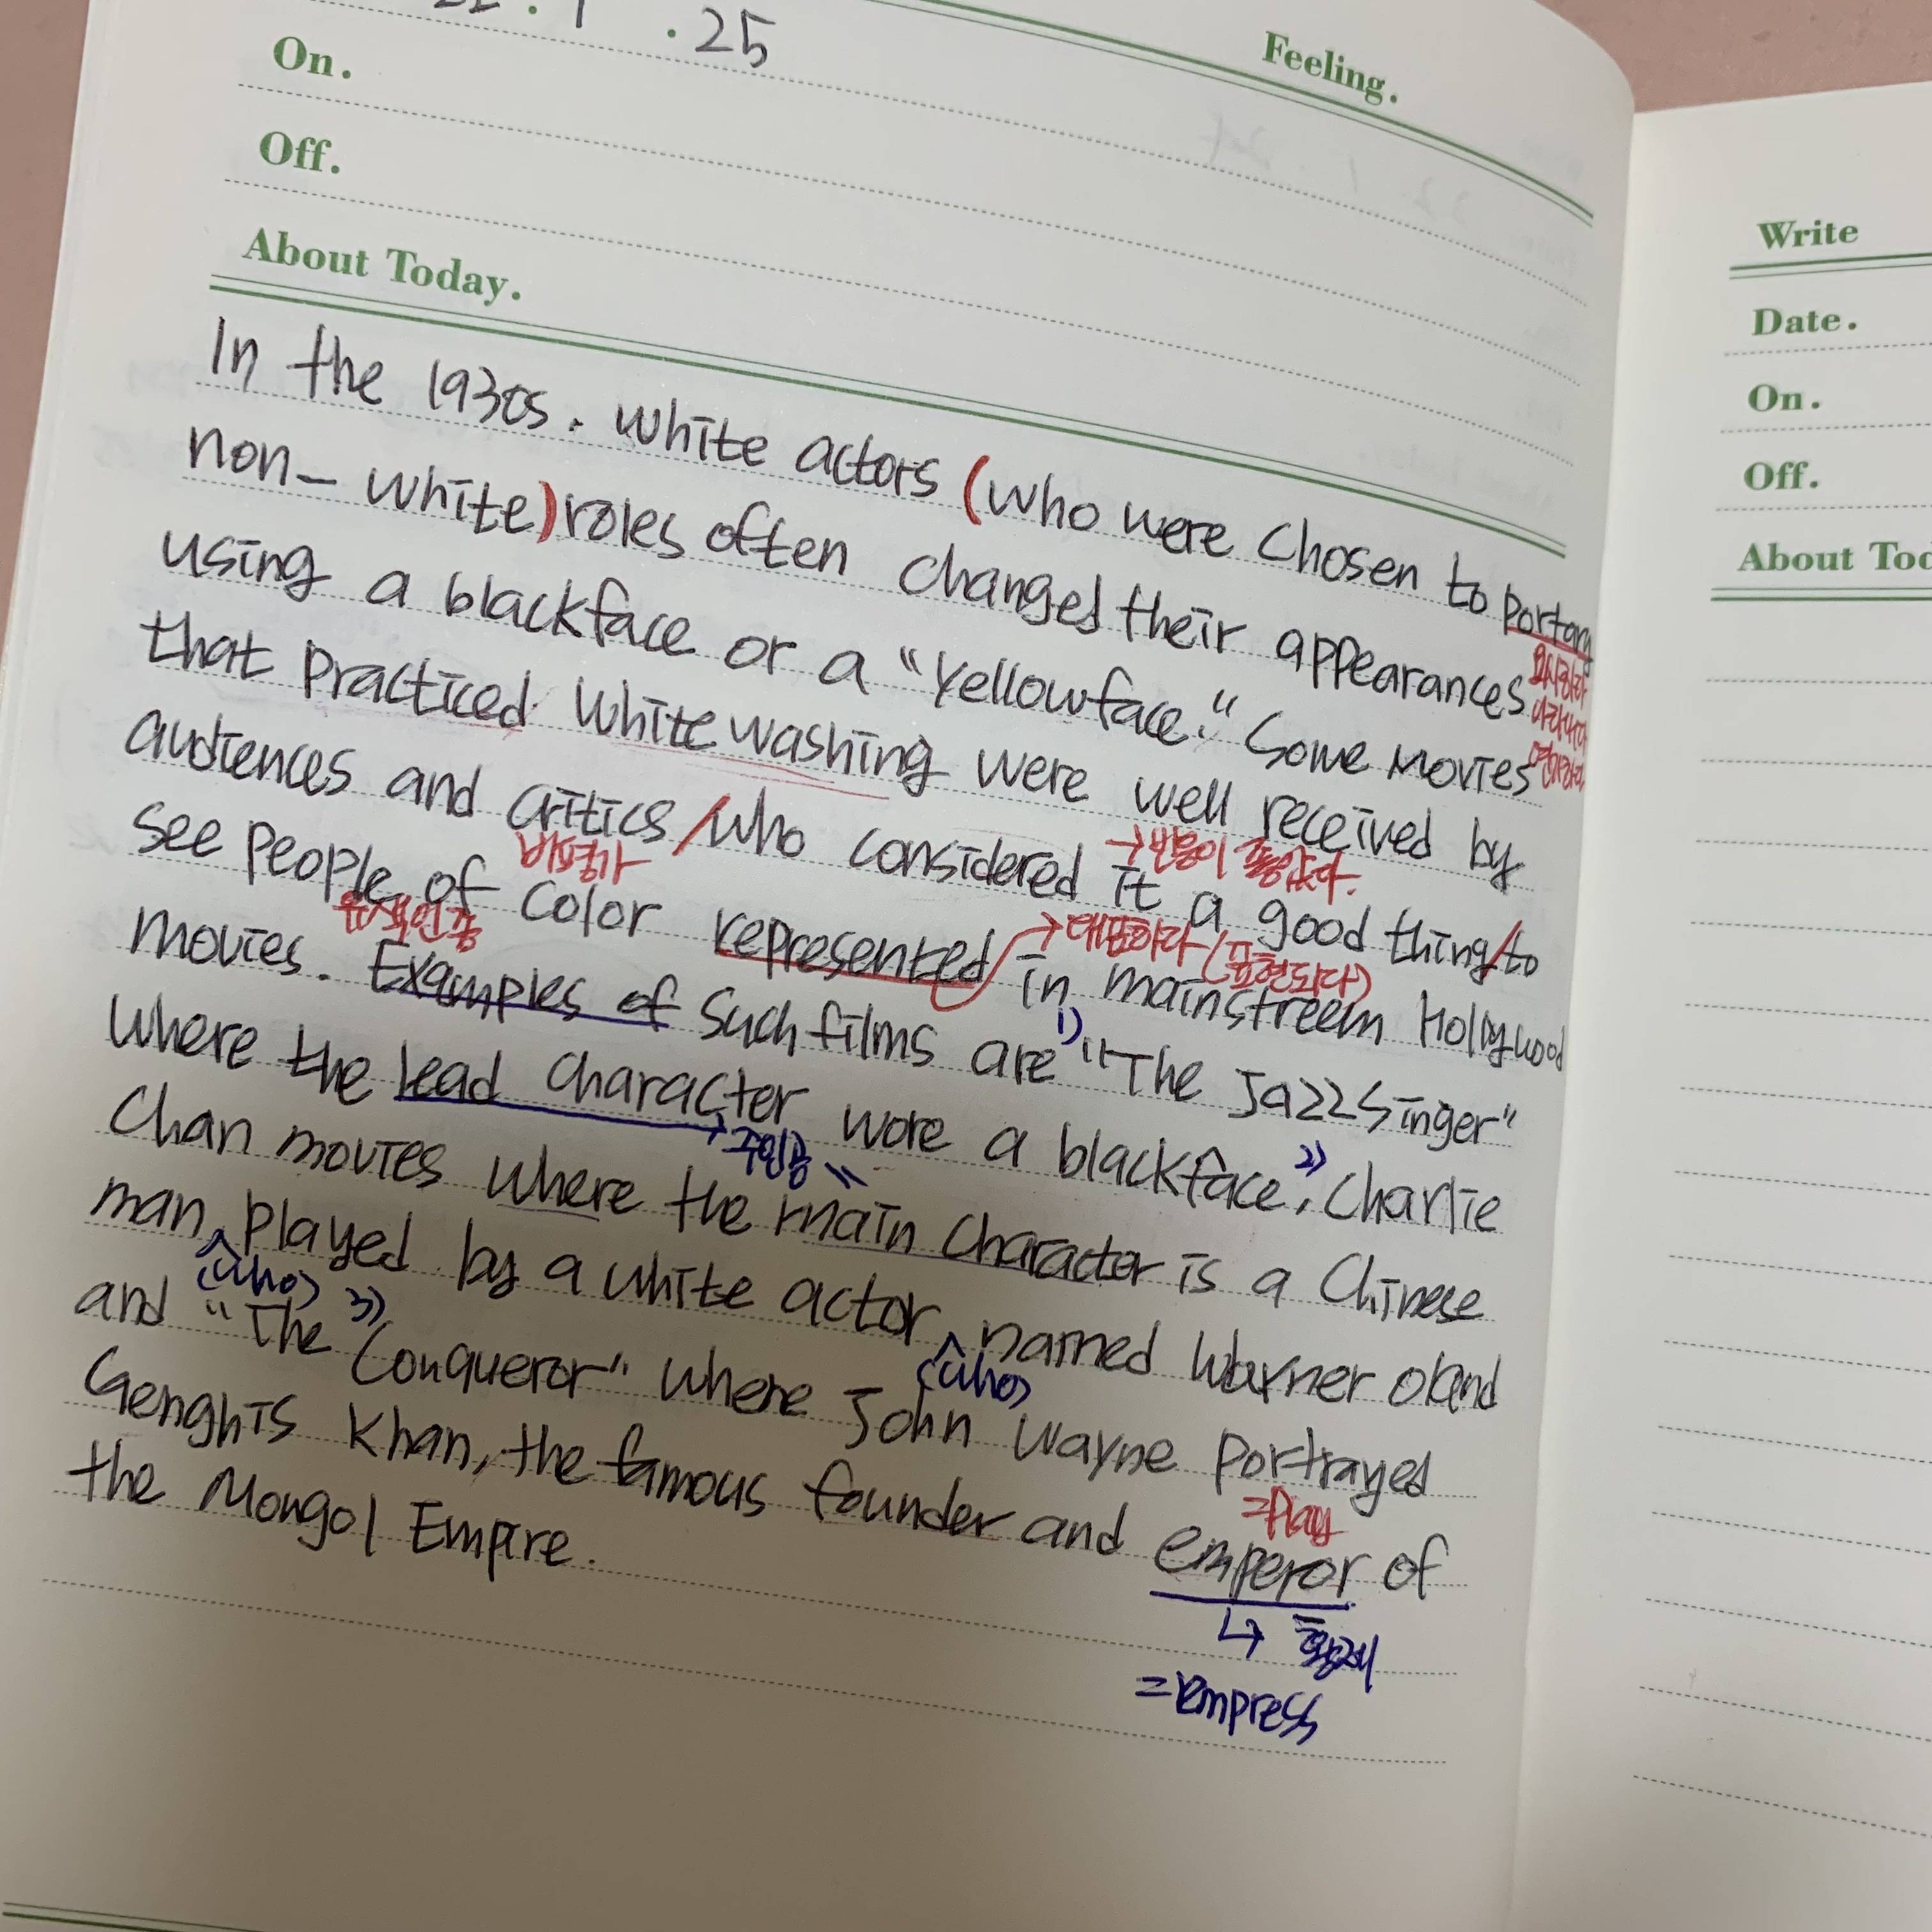 . 1 . 25
Feeling.
On.
Off.
About Today.
In the 1930s. White actors (who were chosen to portary
non-white) roles often changed their appearances
묘사하다
나타내다
연기하다
using a blackface or a "Yellowface." Some movies
that practiced Whitewashing were well received by
→반응이 좋았다.
audiences and critics / who considered it a good thing / to
비평가
see people of color represented in mainstreem Hollywood
유색인종
→대표하다 (표현되다)
movies. Examples of such films are 1) "The Jazz Singer"
where the lead character wore a blackface, 2) Charlie
→주인공 "
Chan movies where the main character is a Chinese
man played by a white actor named Warner oland
(who)
(who)
and 3) "The Conqueror" where John Wayne portrayed
=play
Genghis Khan, the famous founder and emperor of
↳ 황제
=empress
the Mongol Empire.
Write
Date.
On.
Off.
About Tod